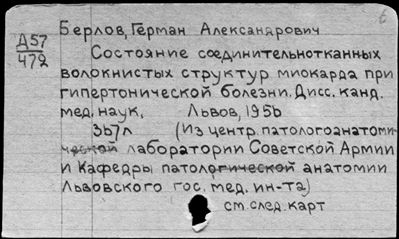 Берлов, Герман Александрович
Д57
472
Состояние соединительнотканных
волокнистых структур миокарда при
гипертонической болезни. Дисс. канд.
мед. наук. Львов, 1956
367л (Из центр. патологоанатоми-
ческой лаборатории Советской Армии
и Кафедры патологической анатомии
Львовского гос. мед. ин-та)
см. след. карт